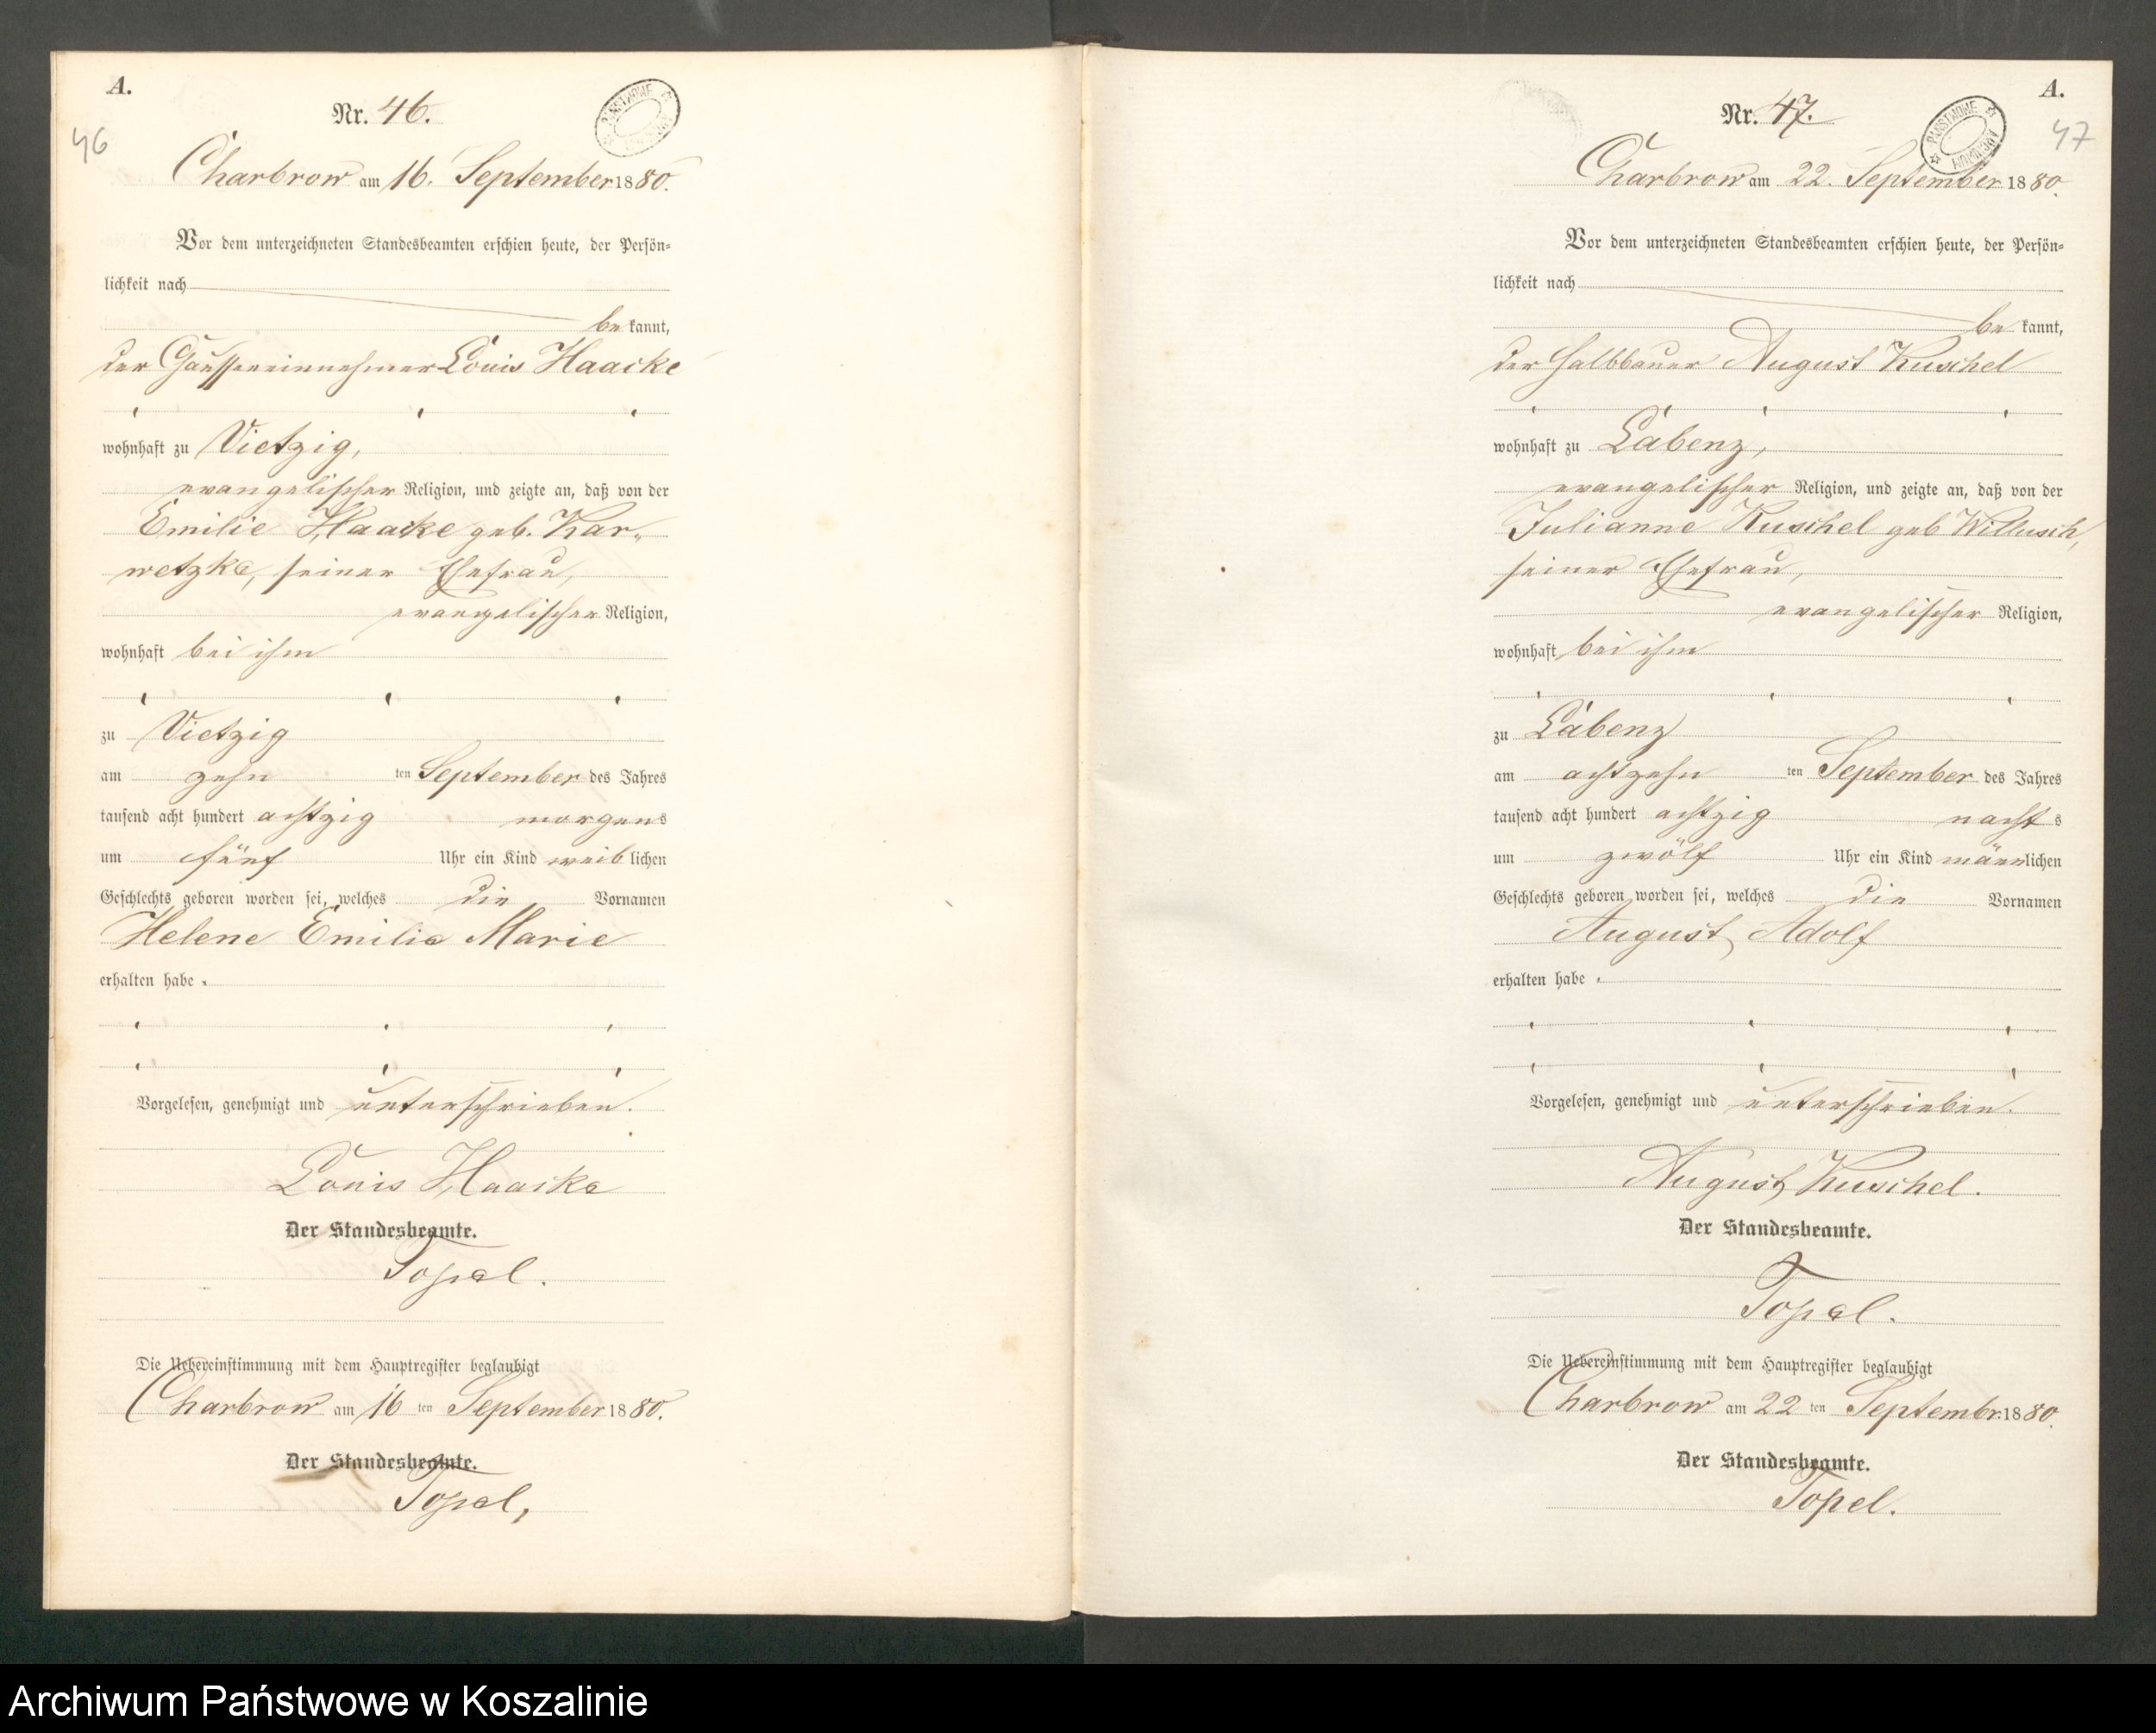 A.
Nr. 46.
46
PAŃSTWOWE
Charbrow am 16. September 1880.
Vor dem unterzeichneten Standesbeamten erschien heute, der Persön=
lichkeit nach
be kannt,
der Chausseeeinnehmer Louis Haacke
wohnhaft zu Vietzig,
evangelischer Religion, und zeigte an, daß von der
Emilie Haacke geb. Kar-
wetzke, seiner Ehefrau,
evangelischer Religion,
wohnhaft bei ihm
zu Vietzig
am zehn ten September des Jahres
tausend acht hundert achtzig morgens
um fünf Uhr ein Kind weiblichen
Geschlechts geboren worden sei, welches die Vornamen
Helene Emilie Marie
erhalten habe.
Vorgelesen, genehmigt und unterschrieben.
Louis Haacke
Der Standesbeamte.
Topel.
Die Uebereinstimmung mit dem Hauptregister beglaubigt
Charbrow am 16 ten September 1880.
Der Standesbeamte.
Topel.
A.
Nr. 47.
47
PAŃSTWOWE ARCHIWUM
Charbrow am 22. September 1880.
Vor dem unterzeichneten Standesbeamten erschien heute, der Persön=
lichkeit nach
be kannt,
der Halbbauer August Kuschel
wohnhaft zu Labenz,
evangelischer Religion, und zeigte an, daß von der
Julianne Kuschel geb Willusch,
seiner Ehefrau,
evangelischer Religion,
wohnhaft bei ihm
zu Labenz
am achtzehn ten September des Jahres
tausend acht hundert achtzig nachts
um zwölf Uhr ein Kind männlichen
Geschlechts geboren worden sei, welches die Vornamen
August Adolf
erhalten habe.
Vorgelesen, genehmigt und unterschrieben.
August Kuschel.
Der Standesbeamte.
Topel.
Die Uebereinstimmung mit dem Hauptregister beglaubigt
Charbrow am 22 ten Septembr. 1880.
Der Standesbeamte.
Topel.
Archiwum Państwowe w Koszalinie